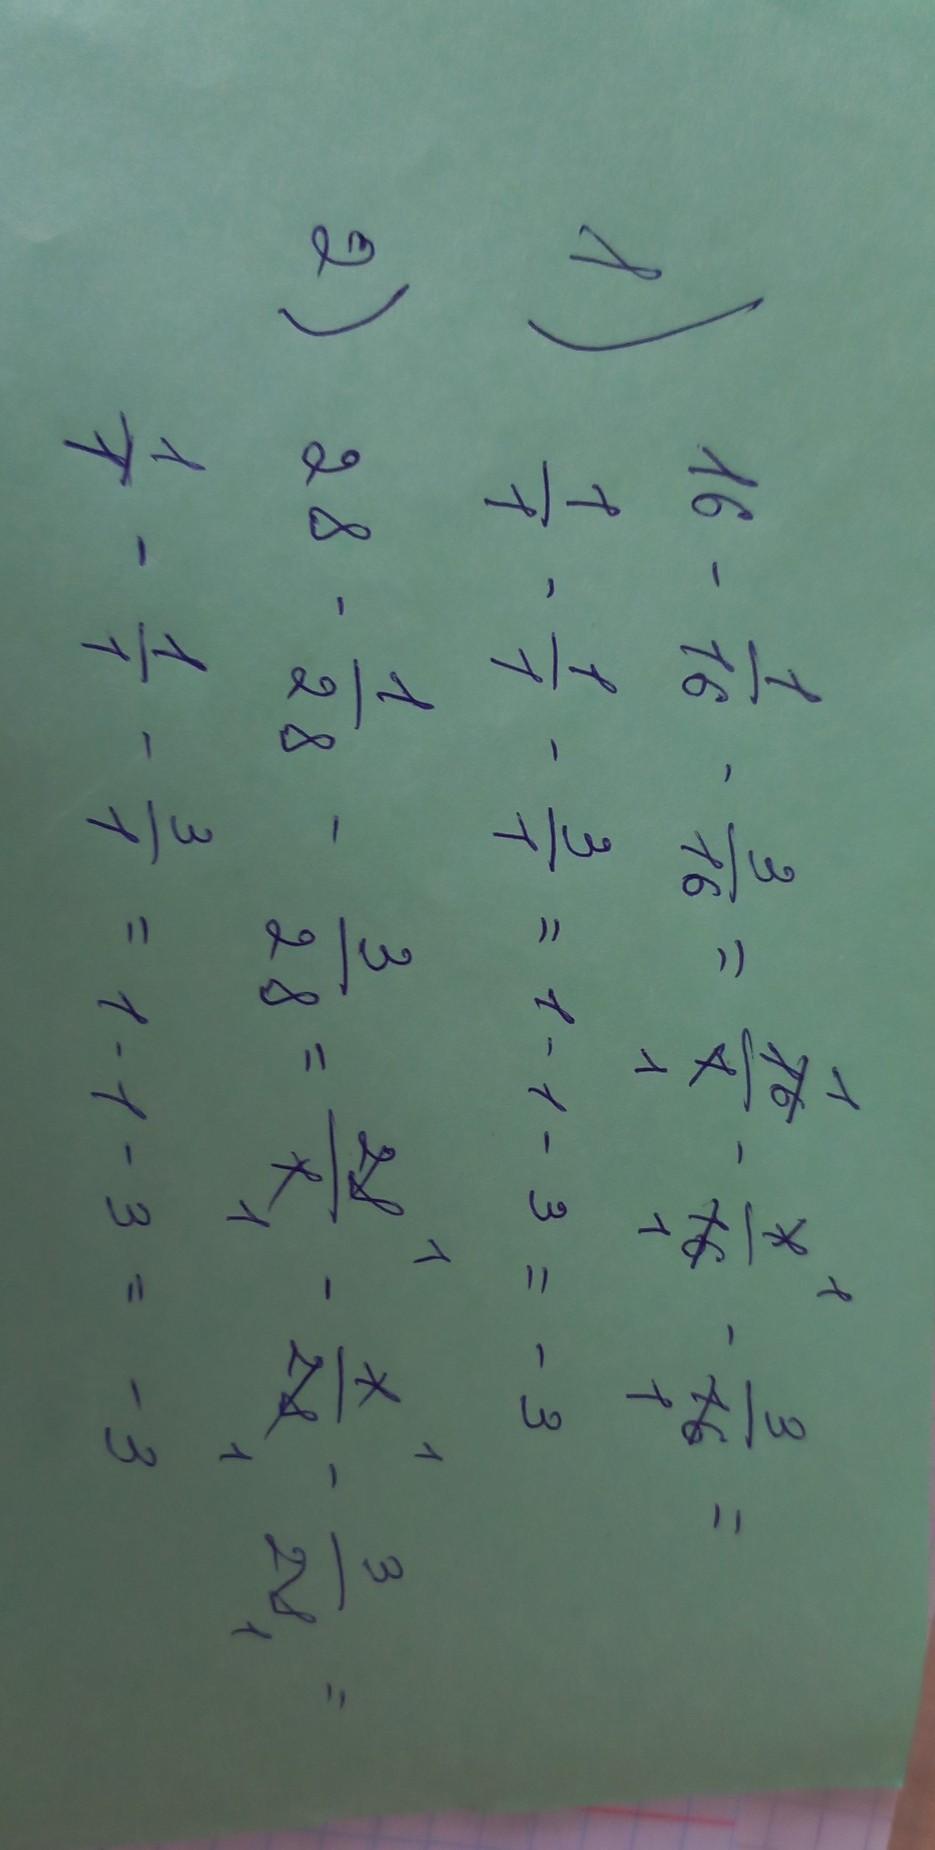 1) 16 - 1/16 - 3/16 = 16/1 - 1/16 - 3/16 =
1/1 - 1/1 - 3/1 = 1 - 1 - 3 = -3
2) 28 - 1/28 - 3/28 = 28/1 - 1/28 - 3/28 =
1/1 - 1/1 - 3/1 = 1 - 1 - 3 = -3